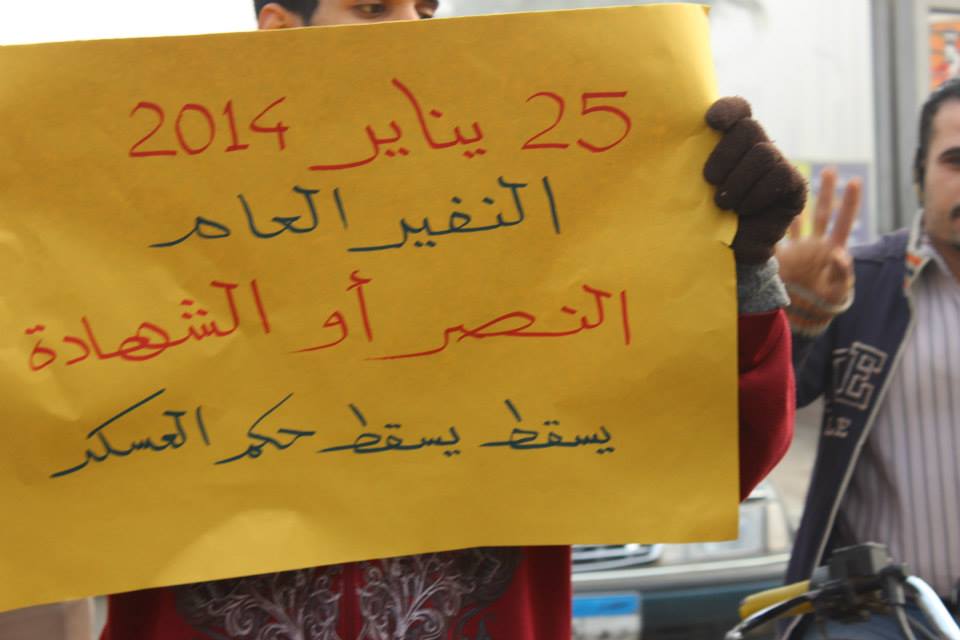 25 يناير 2014
النفير العام
النصر أو الشهادة
يسقط يسقط حكم العسكر
LE